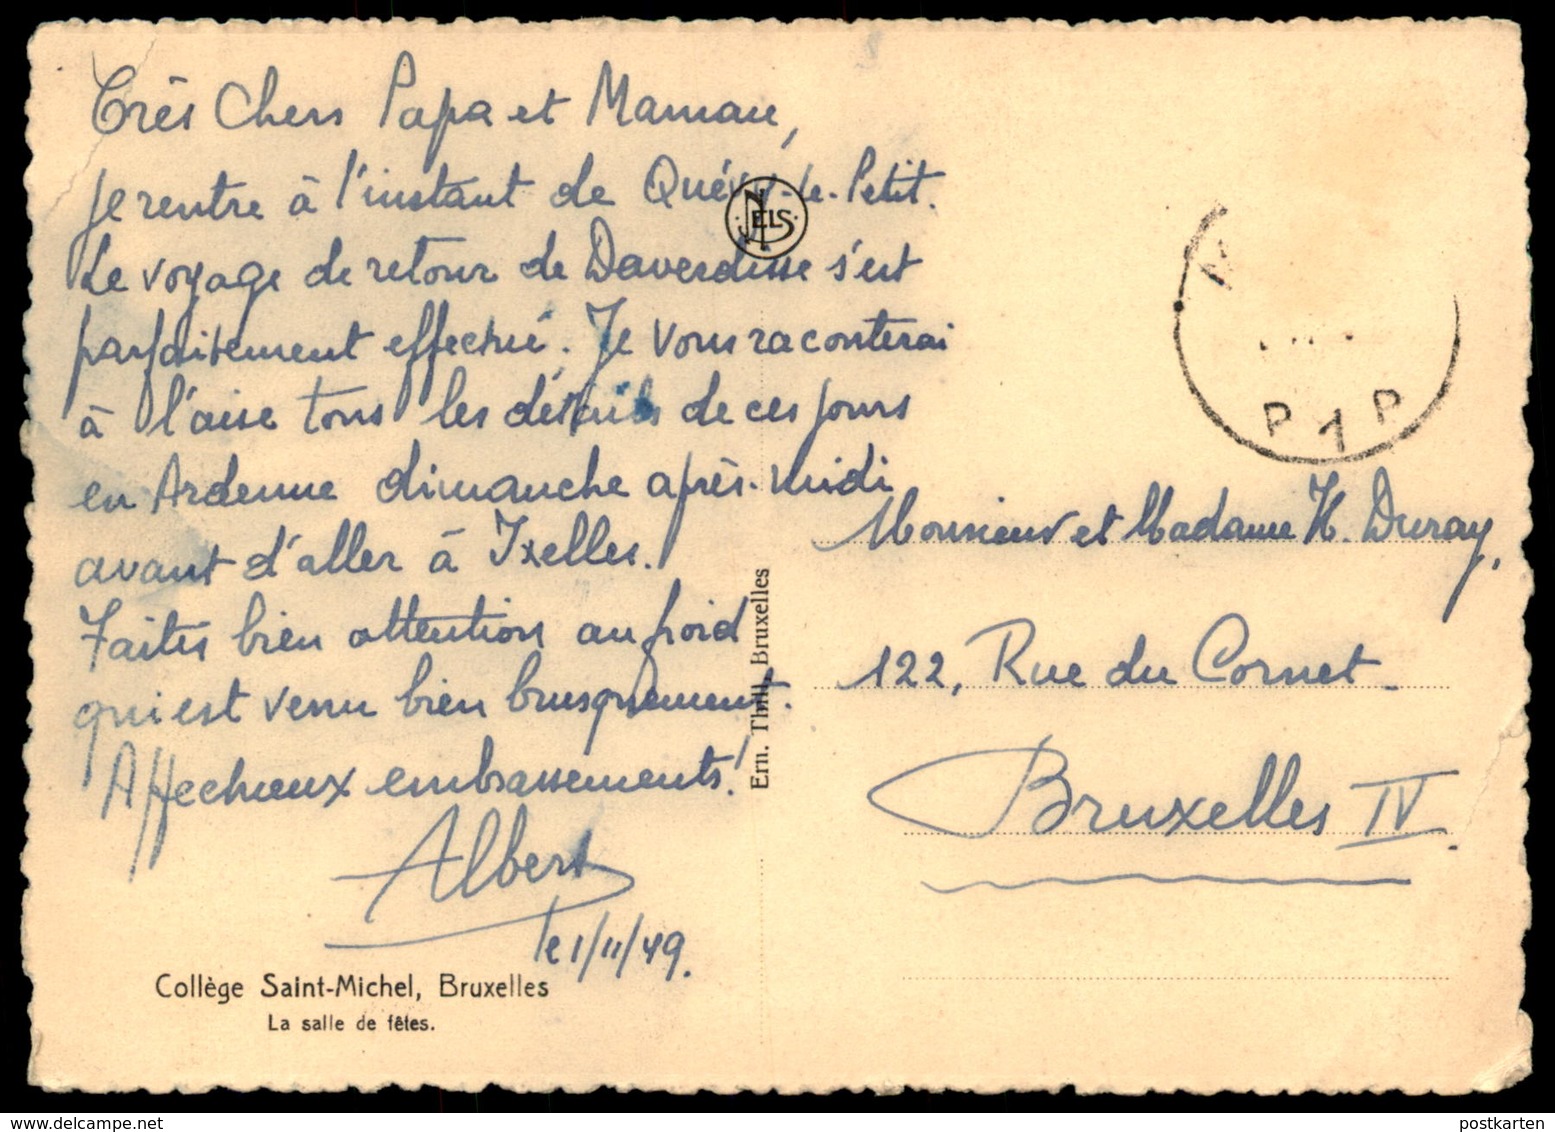 Très Chers Papa et Maman,
je rentre à l'instant de Quévy-le-Petit.
Le voyage de retour de Daverdisse s'est
parfaitement effectué. Je vous raconterai
à l'aise tous les détails de ces jours
en Ardenne dimanche après-midi
avant d'aller à Ixelles.
Faites bien attention au froid
qui est venu bien brusquement.
Affectueux embrassements!
Albert
le 1/11/49.
Collège Saint-Michel, Bruxelles
La salle de fêtes.
NELS
Ern. Thill, Bruxelles
P 1 P
Monsieur et Madame H. Duray,
122, Rue du Cornet.
Bruxelles IV.
postkarten